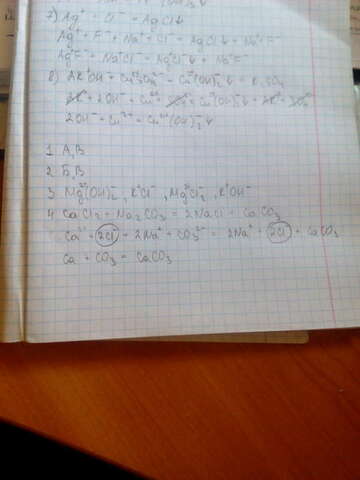 7) Ag⁺ + Cl⁻ = AgCl↓
Ag⁺ + F⁻ + Na⁺ + Cl⁻ = AgCl↓ + Na⁺F⁻
Ag⁺F⁻ + Na⁺Cl⁻ = Ag⁺Cl↓ + Na⁺F⁻
8) 2K⁺OH + Cu²⁺SO₄²⁻ = Cu²⁺(OH)₂⁻↓ + K₂SO₄
2OH⁻ + Cu²⁺ = Cu²⁺(OH)₂⁻↓
1 А,В
2 Б,В
3 Mg²⁺(OH)₂⁻, K⁺Cl⁻, Mg²⁺Cl₂⁻, K⁺OH⁻
4 CaCl₂ + Na₂CO₃ = 2NaCl + CaCO₃
Ca²⁺ + 2Cl⁻ + 2Na⁺ + CO₃²⁻ = 2Na⁺ + 2Cl⁻ + CaCO₃
Ca + CO₃ = CaCO₃